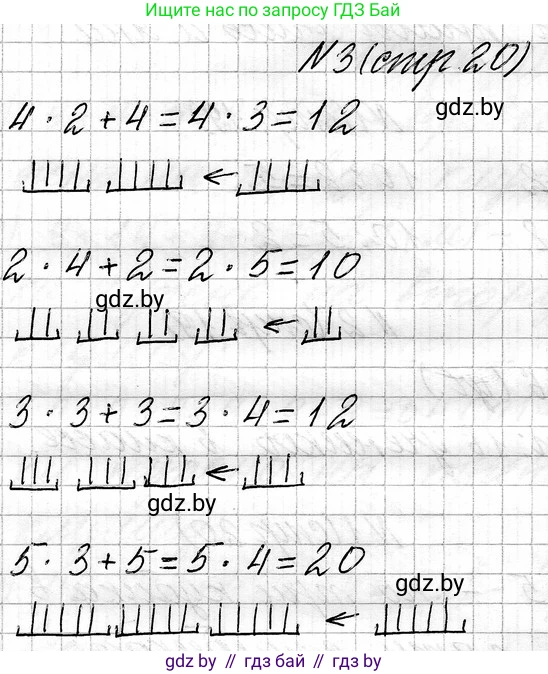 Ищите нас по запросу ГДЗ Бай
N 3 (стр 20)
gdz.by
4 · 2 + 4 = 4 · 3 = 12
2 · 4 + 2 = 2 · 5 = 10
gdz.by
3 · 3 + 3 = 3 · 4 = 12
gdz.by
5 · 3 + 5 = 5 · 4 = 20
gdz.by
gdz.by // гдз бай // gdz.by